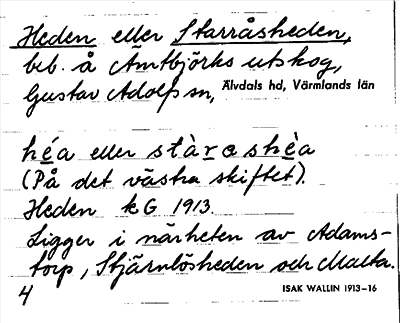 Heden eller Starråsheden,
beb. å Ämtbjörks utskog,
Gustav Adolf sn, Älvdals hd, Värmlands län
héa eller stàrashèa
(På det västra skiftet).
Heden kG 1913.
Ligger i närheten av Adams-
torp, Stjärnlösheden och Malta.
4 ISAK WALLIN 1913-16